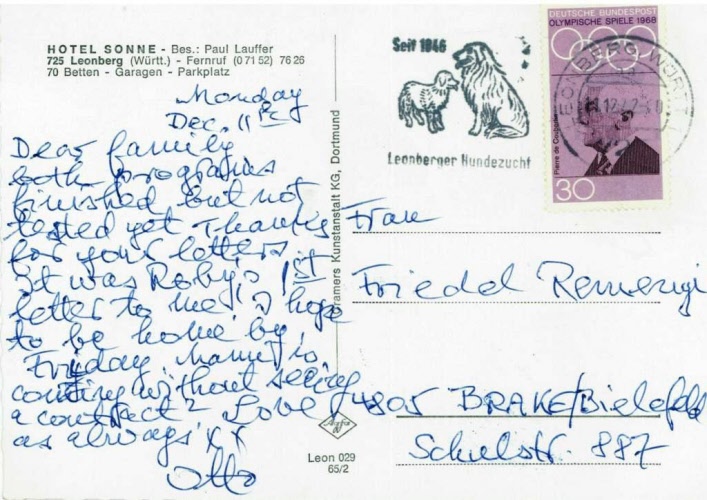 HOTEL SONNE - Bes.: Paul Lauffer
725 Leonberg (Württ.) - Fernruf (0 71 52) 76 26
70 Betten - Garagen - Parkplatz
Monday
Dec. 11th
Dear family
both programs
finished but not
tested yet Thanks
for your letters
it was Roby's 1st
letter to me, I hope
to be home by
Friday.
coming without seeing
a contract? Love
as always xx
Otto
Kramers Kunstanstalt KG, Dortmund
Agfa
Leon 029
65/2
Seit 1846
Leonberger Hundezucht
DEUTSCHE BUNDESPOST
OLYMPISCHE SPIELE 1968
Pierre de Coubertin
30
LEONBERG, WÜRTT
Frau
Friedel Remenyi
4805 BRAKE/Bielefeld
Schulstr. 887